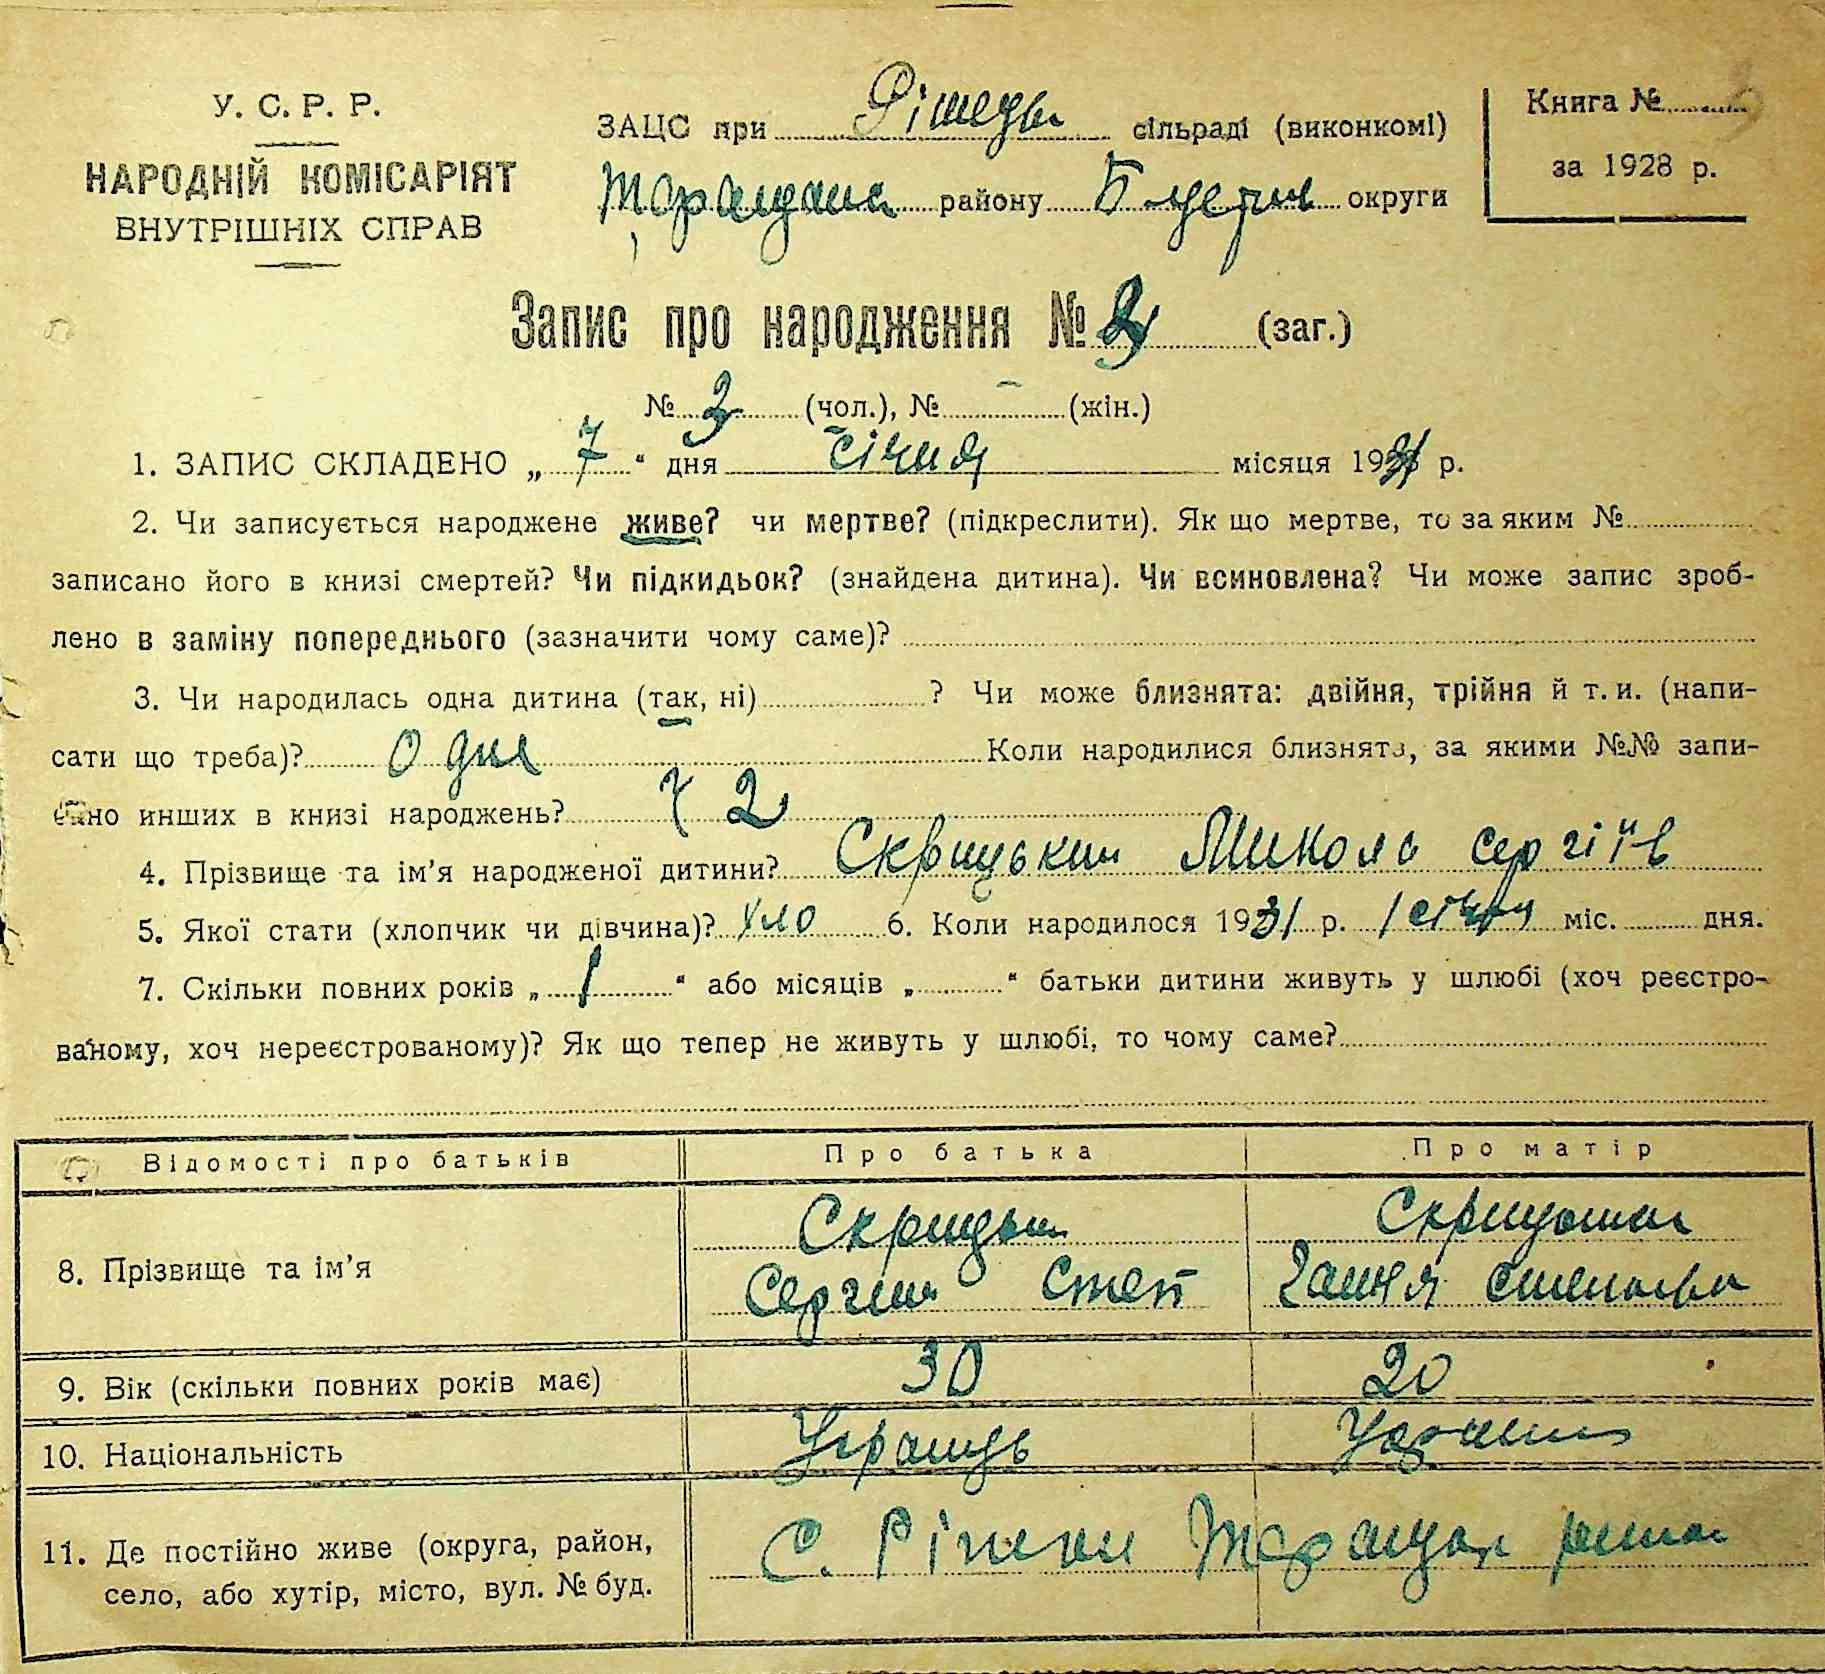 У. С. Р. Р.
НАРОДНІЙ КОМІСАРІЯТ
ВНУТРІШНІХ СПРАВ
ЗАЦС при сільраді (виконкомі)
району округи
Книга №
за 1928 р.
Запис про народження № 3 (заг.)
№ 3 (чол.), № - (жін.)
1. ЗАПИС СКЛАДЕНО „ 7 “ дня січня місяця 1931 р.
2. Чи записується народжене живе? чи мертве? (підкреслити). Як що мертве, то за яким №
записано його в книзі смертей? Чи підкидьок? (знайдена дитина). Чи всиновлена? Чи може запис зроб-
лено в заміну попереднього (зазначити чому саме)?
3. Чи народилась одна дитина (так, ні) ? Чи може близнята: двійня, трійня й т. и. (напи-
сати що треба)? Одна Коли народилися близнята, за якими №№ запи-
сано инших в книзі народжень? 2
4. Прізвище та ім’я народженої дитини? Скрицький Микола Сергіїв
5. Якої стати (хлопчик чи дівчина)? хло 6. Коли народилося 1931 р. 1 січня міс. дня.
7. Скільки повних років „ 1 “ або місяців „ “ батьки дитини живуть у шлюбі (хоч реєстро-
ваному, хоч нереєстрованому)? Як що тепер не живуть у шлюбі, то чому саме?
Відомості про батьків Про батька Про матір
8. Прізвище та ім’я
Сергій Степ Ганя
9. Вік (скільки повних років має) 30 20
10. Національність
11. Де постійно живе (округа, район,
село, або хутір, місто, вул. № буд.
С.